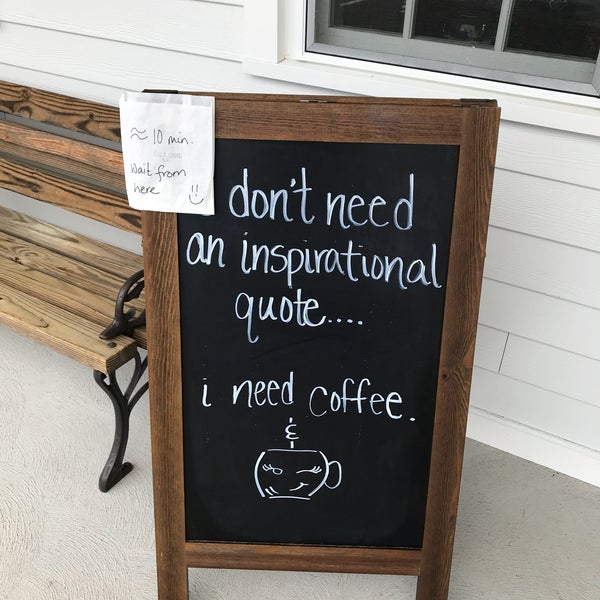 ≈ 10 min.
wait from
here
don't need
an inspirational
quote....
i need coffee.